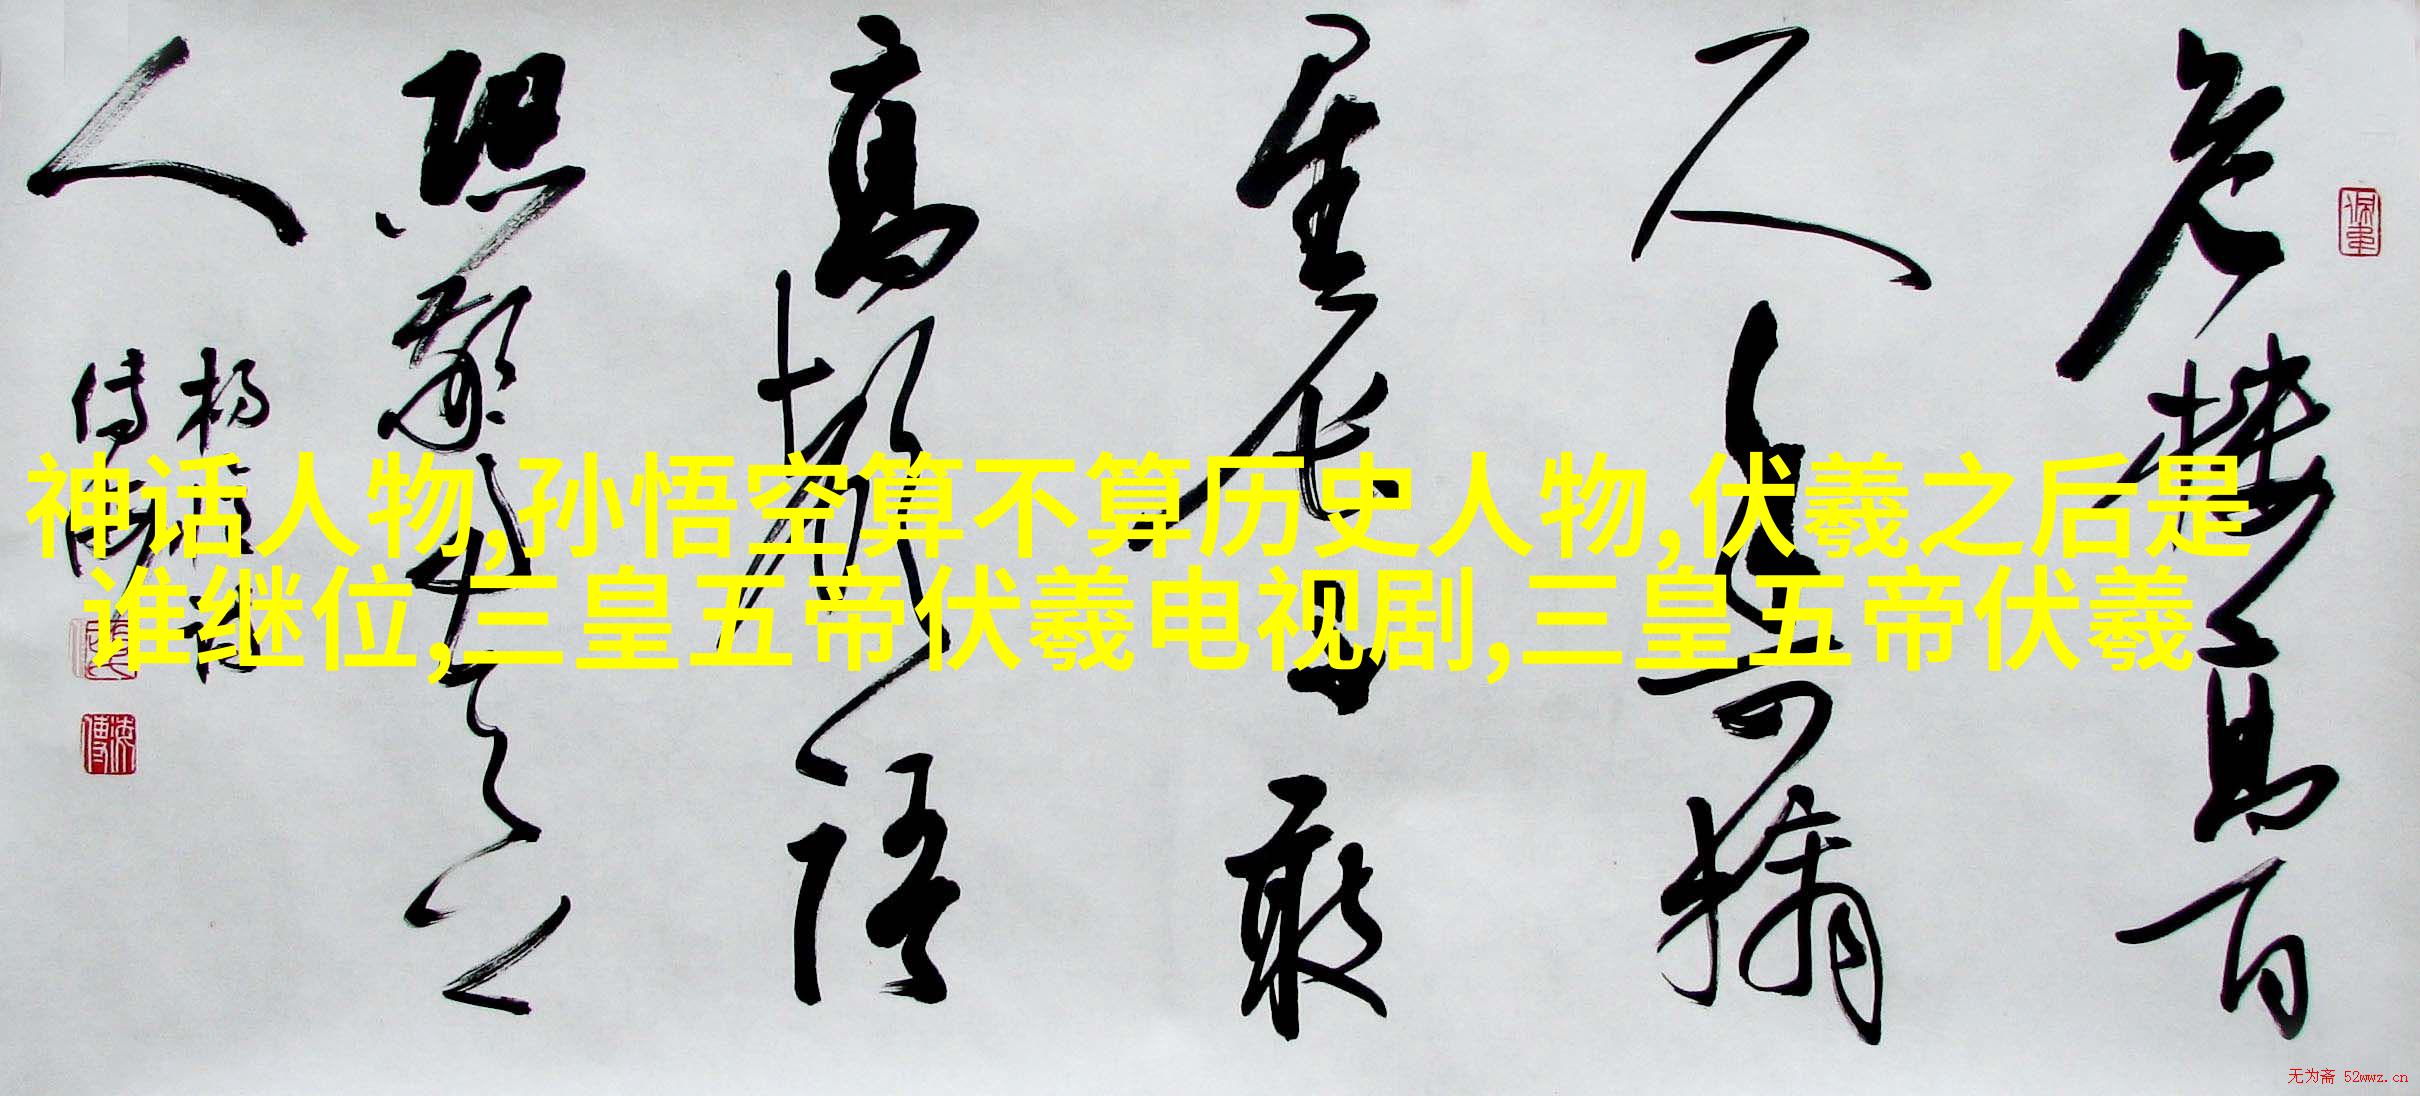 神话人物,孙悟空算不算历史人物,伏羲之后是
谁继位,三皇五帝伏羲电视剧,三皇五帝伏羲
危楼高百
尺手可摘
星辰不敢
高声语
恐惊天上
人
无为斋 52wwz.cn